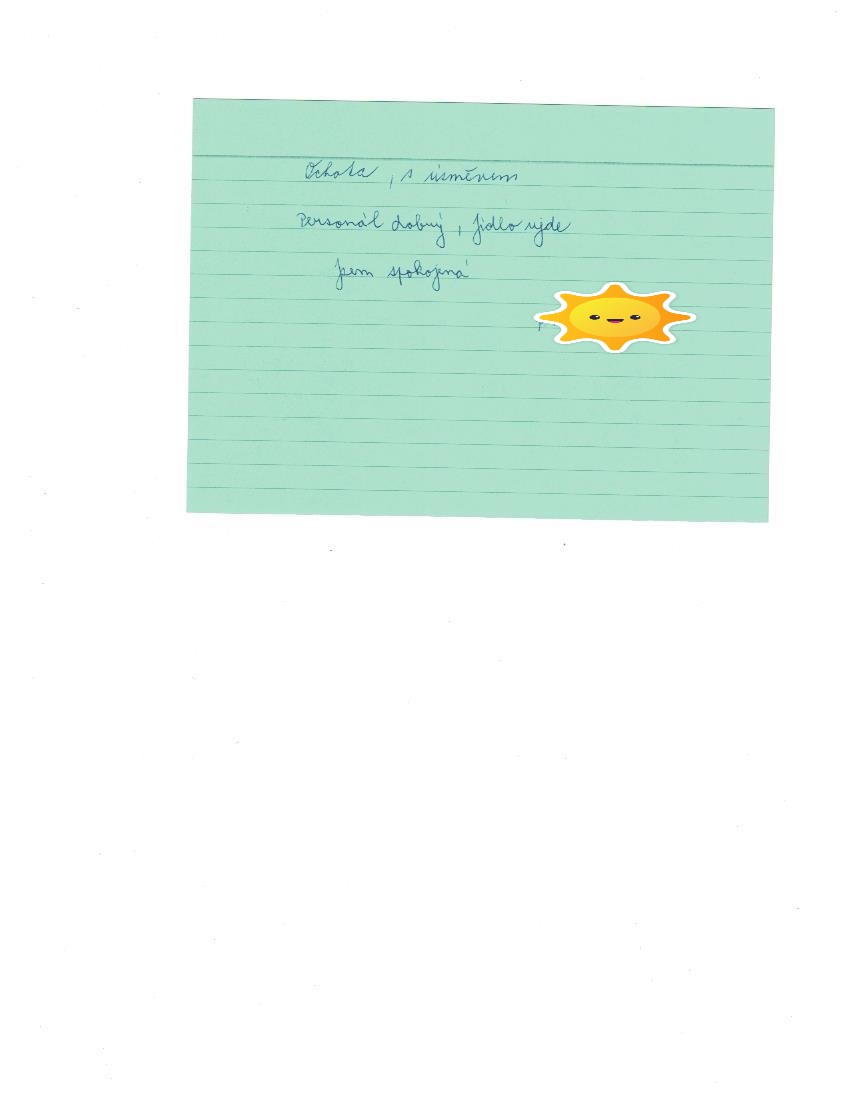 Ochota, s úsměvem
Personál dobrý, jídlo ujde
jsem spokojená